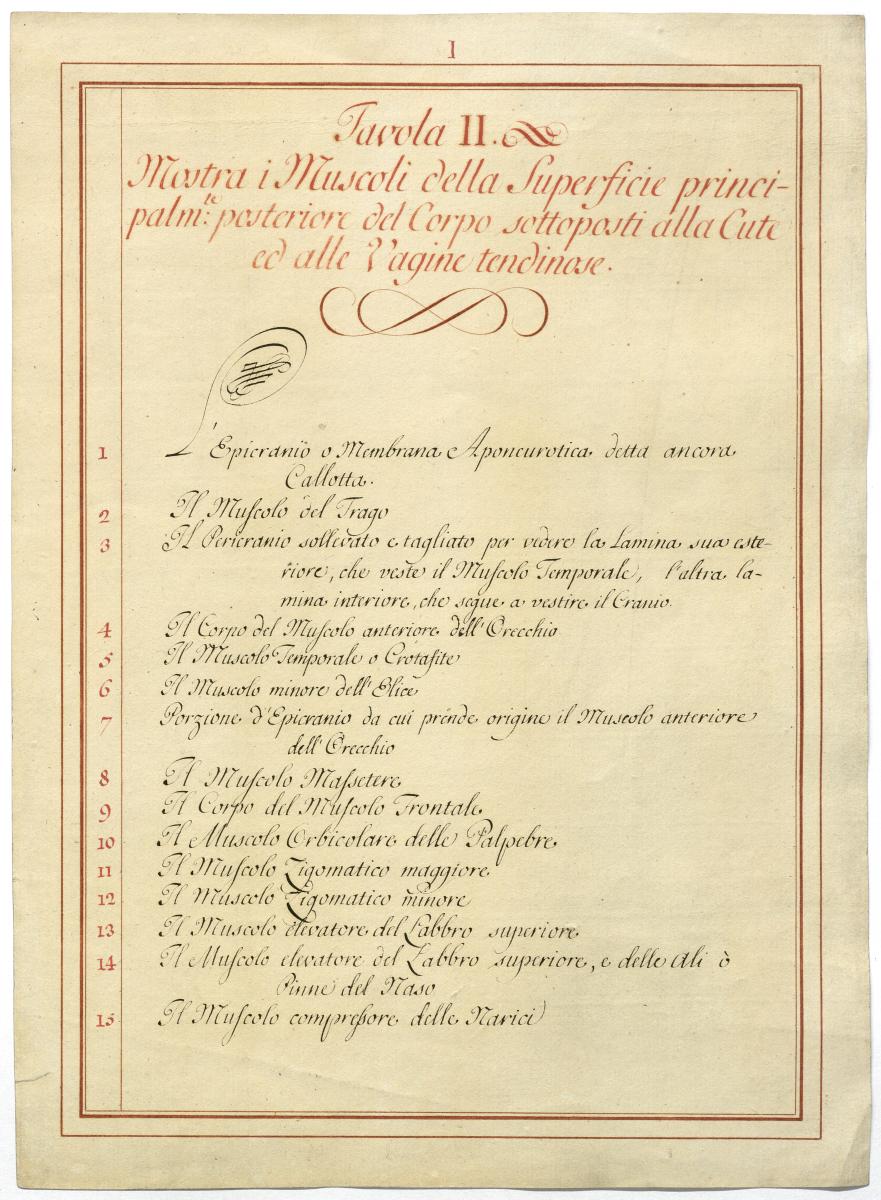 I
Tavola II.
Mostra i Muscoli della Superficie princi-
palm:te posteriore del Corpo sottoposti alla Cute
ed alle Vagine tendinose.
1 L'Epicranio o Membrana Aponeurotica detta ancora
Callotta.
2 Il Muſcolo del Trago
3 Il Pericranio sollevato e tagliato per vedere la Lamina sua este-
riore, che veste il Muſcolo Temporale, l'altra la-
mina interiore, che segue a vestire il Cranio.
4 Il Corpo del Muſcolo anteriore dell'Orecchio
5 Il Muscolo Temporale o Crotafite
6 Il Muscolo minore dell'Elice
7 Porzione d'Epicranio da cui prende origine il Muscolo anteriore
dell'Orecchio
8 Il Muſcolo Maſsetere
9 Il Corpo del Muſcolo Frontale
10 Il Muscolo Orbicolare delle Palpebre
11 Il Muſcolo Zigomatico maggiore
12 Il Muscolo Zigomatico minore
13 Il Muscolo elevatore del Labbro superiore
14 Il Muſcolo elevatore del Labbro superiore, e delle Ali ò
Pinne del Naso
15 Il Muſcolo compreſsore delle Narici